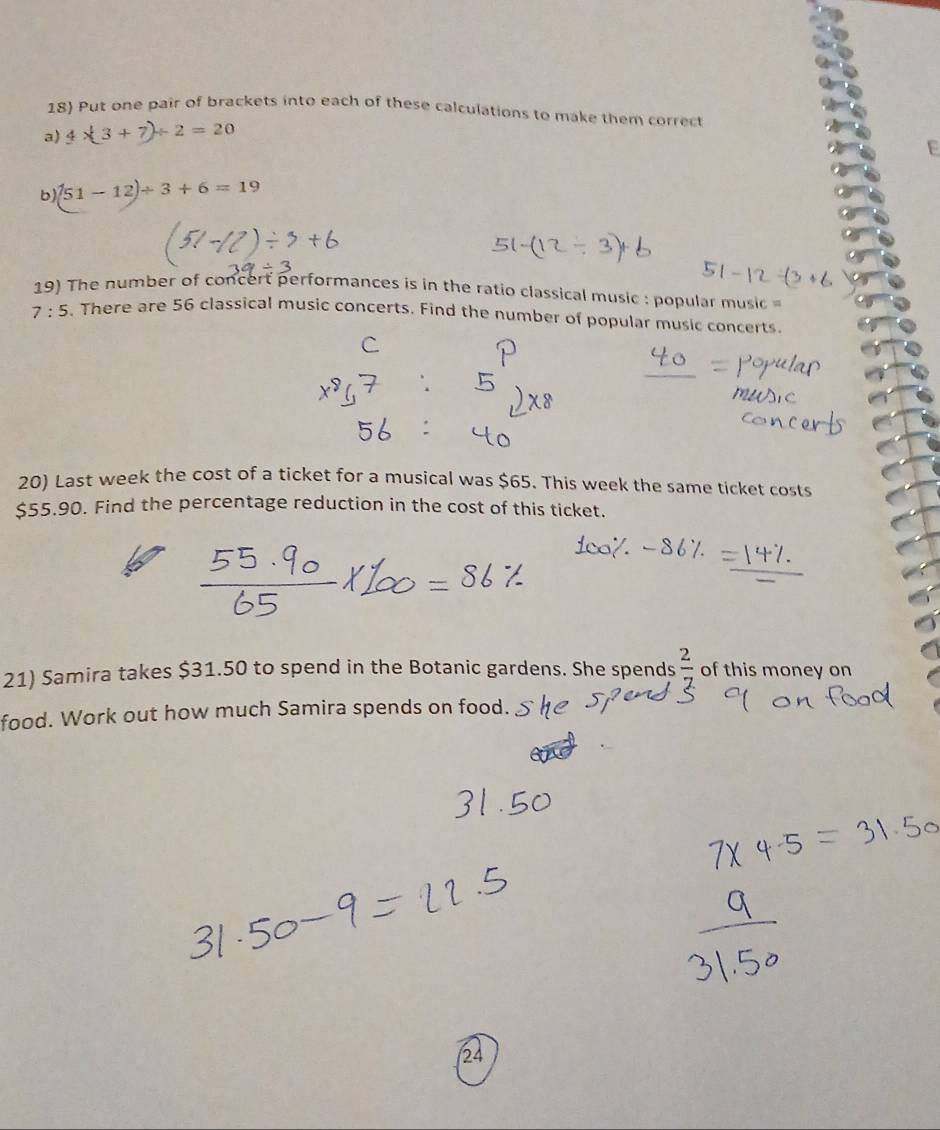 18) Put one pair of brackets into each of these calculations to make them correct
a) 4 × (3 + 7) ÷ 2 = 20
b) (51 − 12) ÷ 3 + 6 = 19
(51-12) ÷ 3 + 6
39 ÷ 3
51-(12 ÷ 3)+6
51-12 ÷(3+6)
19) The number of concert performances is in the ratio classical music : popular music =
7 : 5. There are 56 classical music concerts. Find the number of popular music concerts.
C P
x8 7 : 5 x8
56 : 40
40 = popular
music
concerts
20) Last week the cost of a ticket for a musical was $65. This week the same ticket costs
$55.90. Find the percentage reduction in the cost of this ticket.
55.90/65 x 100 = 86%
100% - 86% = 14%
21) Samira takes $31.50 to spend in the Botanic gardens. She spends 2/7 of this money on
food. Work out how much Samira spends on food. She spends 9 on food
31.50
7 x 4.5 = 31.50
31.50 - 9 = 22.5
9/31.50
24